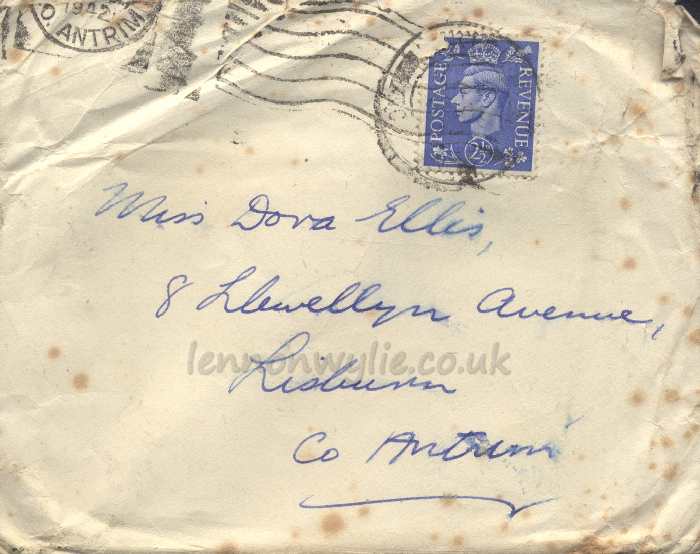 1942
O. ANTRIM
POSTAGE
REVENUE
2½D
Miss Dora Ellis,
8 Llewellyn Avenue,
lennonwylie.co.uk
Lisburn
Co Antrim